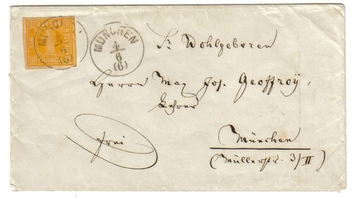 MÜNCHEN
4
6
(6)
Sr Wohlgeboren
Herrn Max Jos. Geoffroÿ,
Lehrer
frei
München
(Müllerstr. 3/II)